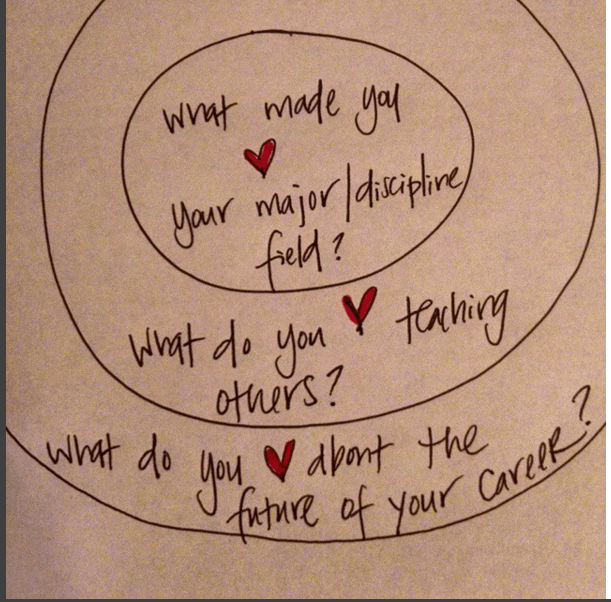 what made you
♥
your major/discipline
field?
What do you ♥ teaching
others?
What do you ♥ about the
future of your career?